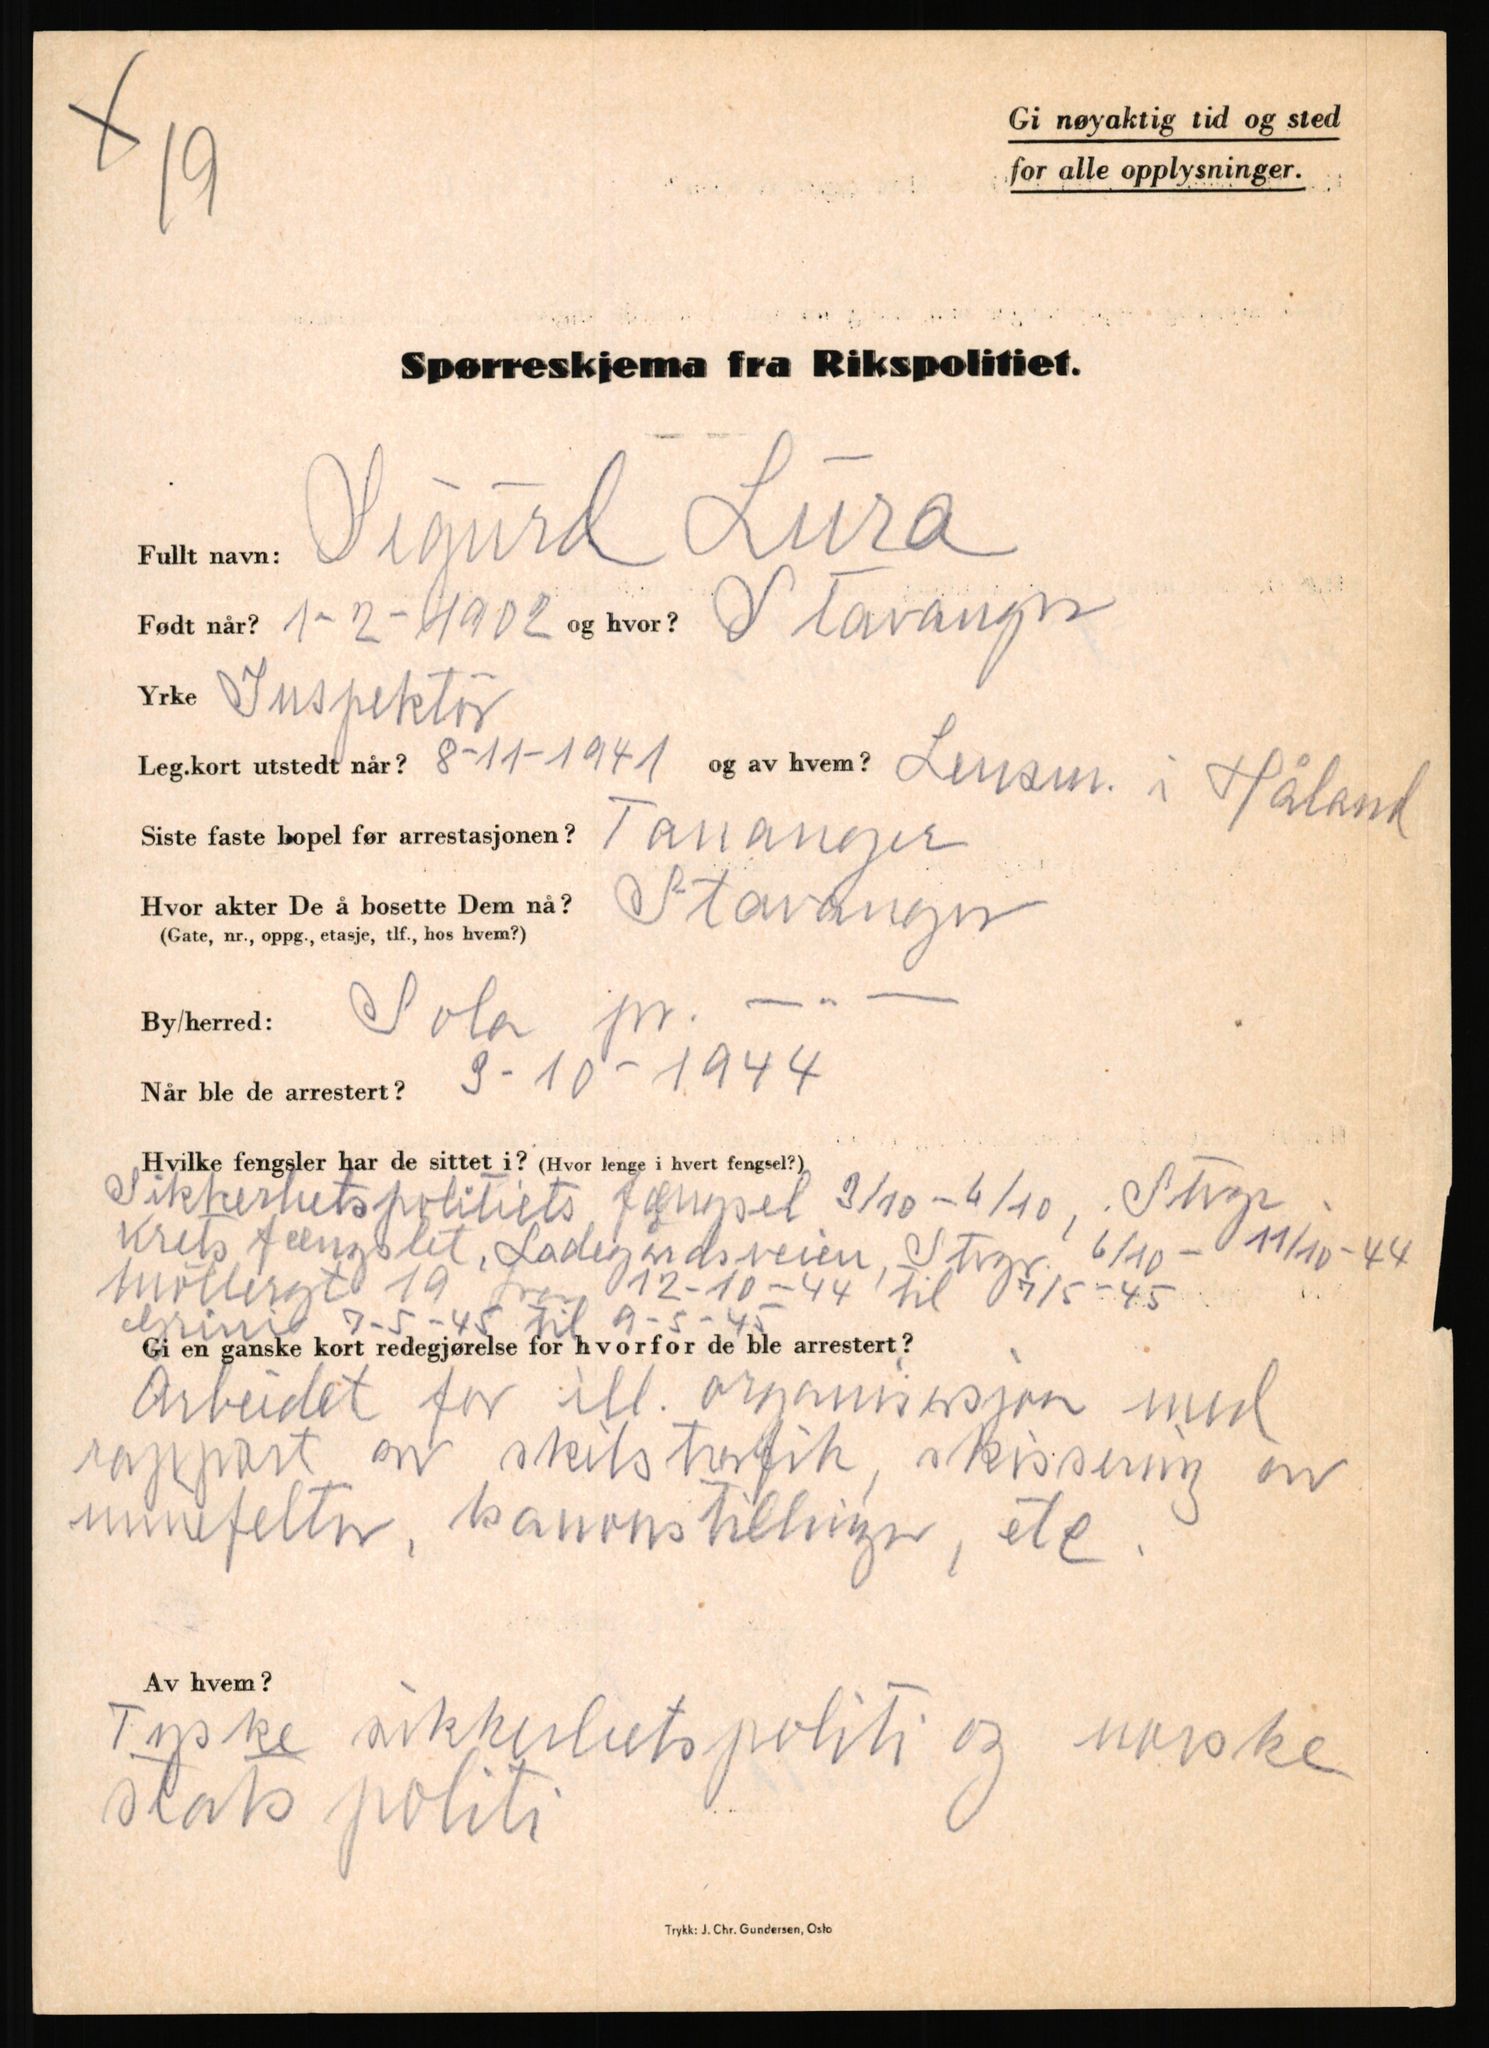 X
19
Gi nøyaktig tid og sted
for alle opplysninger.
Spørreskjema fra Rikspolitiet.
Fullt navn: Sigurd Lura
Født når? 1-2-1902 og hvor? Stavanger
Yrke Inspektör
Leg.kort utstedt når? 8-11-1941 og av hvem? Lensm. i Håland
Siste faste bopel før arrestasjonen? Tananger
Hvor akter De å bosette Dem nå? Stavanger
(Gate, nr., oppg., etasje, tlf., hos hvem?)
By/herred: Sola pr. — " —
Når ble de arrestert? 3-10-1944
Hvilke fengsler har de sittet i? (Hvor lenge i hvert fengsel?)
Sikkerhetspolitiets fængsel 3/10 - 6/10, Stvgr.
Kretsfængslet, Ladegårdsveien, Stvgr. 6/10 - 11/10-44
Möllergt 19 fra 12-10-44 til 7/5-45
Grini 7-5-45 til 9-5-45
Gi en ganske kort redegjørelse for hvorfor de ble arrestert?
Arbeidet for ill. organisasjon med
rapport av skibstrafik, skissering av
minefelter, kanonstillinger, etc.
Av hvem?
Tyske sikkerhetspoliti og norske
stats politi
Trykk: J. Chr. Gundersen, Oslo